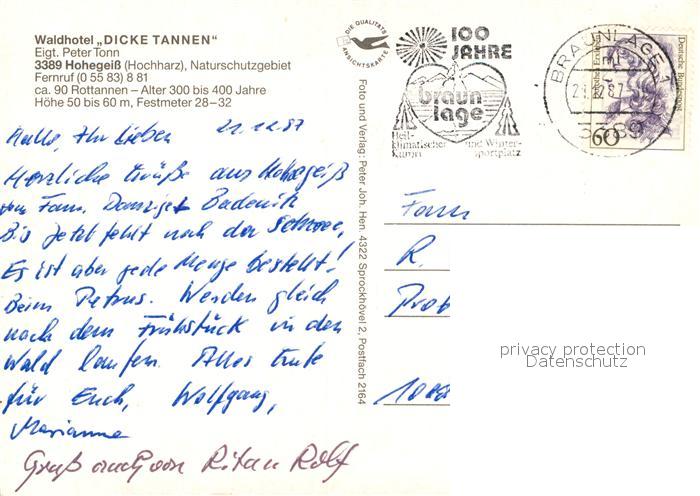 Waldhotel „DICKE TANNEN“
Eigt. Peter Tonn
3389 Hohegeiß (Hochharz), Naturschutzgebiet
Fernruf (0 55 83) 8 81
ca. 90 Rottannen – Alter 300 bis 400 Jahre
Höhe 50 bis 60 m, Festmeter 28–32
Hallo, Ihr Lieben 21.12.87
Herzliche Grüße aus Hohegeiß
von Fam. Danziger
Bis jetzt fehlt noch der Schnee,
Es ist aber jede Menge bestellt!
Beim Petrus. Werden gleich
nach dem Frühstück in den
Wald laufen. Alles Gute
für Euch, Wolfgang,
Marianne
Gruß auch von Rita u Rolf
DIE QUALITÄTS
ANSICHTSKARTE
Foto und Verlag: Peter Joh. Hen. 4322 Sprockhövel 2, Postfach 2164
100
JAHRE
braun
lage
Heil-
klimatischer und Winter-
Kurort sportplatz
BRAUNLAGE 1
21.12.87
3389
Deutsche Bundespost
60
Fam
R.
Prob
privacy protection
Datenschutz